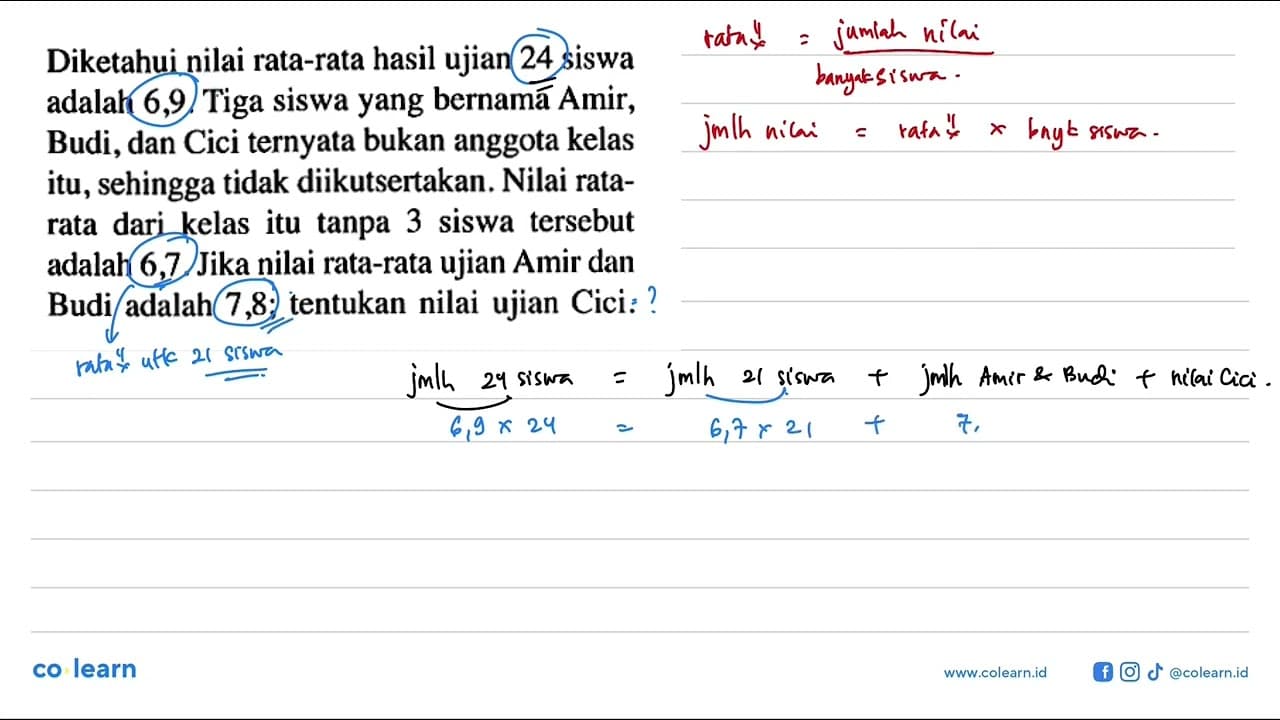 Diketahui nilai rata-rata hasil ujian 24 siswa
adalah 6,9. Tiga siswa yang bernama Amir,
Budi, dan Cici ternyata bukan anggota kelas
itu, sehingga tidak diikutsertakan. Nilai rata-
rata dari kelas itu tanpa 3 siswa tersebut
adalah 6,7. Jika nilai rata-rata ujian Amir dan
Budi adalah 7,8; tentukan nilai ujian Cici. = ?
rata" utk 21 siswa
rata" = jumlah nilai
banyak siswa.
jmlh nilai = rata" x bnyk siswa.
jmlh 24 siswa = jmlh 21 siswa + jmlh Amir & Budi + nilai Cici.
6,9 x 24 = 6,7 x 21 + 7,
co learn
www.colearn.id
@colearn.id